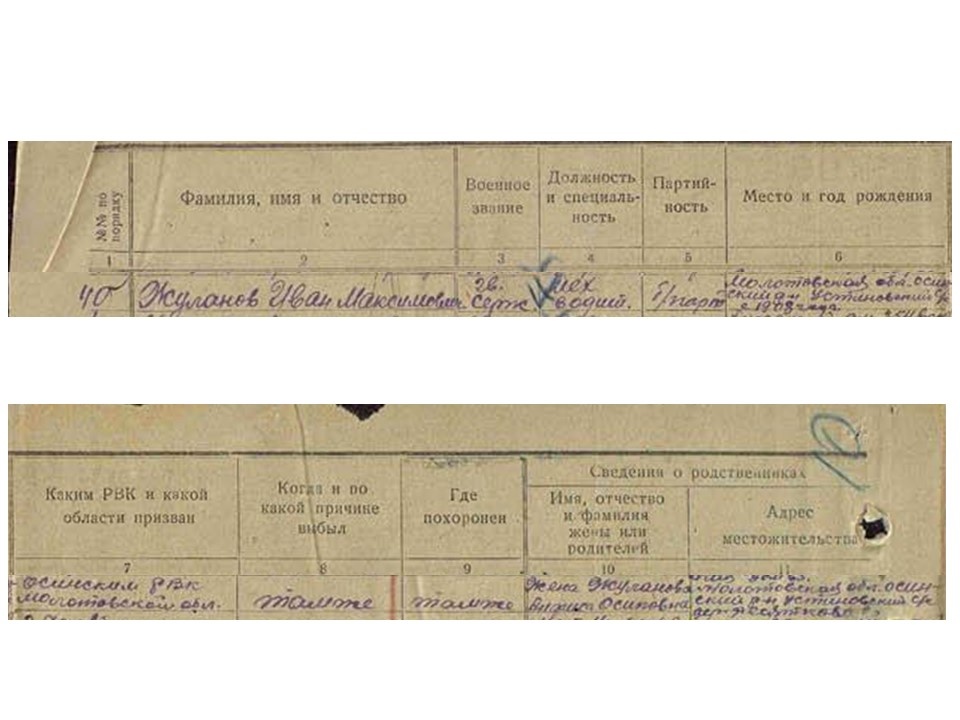 №№ по порядку
Фамилия, имя и отчество
Военное звание
Должность и специаль-ность
Партий-ность
Место и год рождения
1 2 3 4 5 6
40 Жуланов Иван Максимович гв. серж. мех водит. б/парт Молотовская обл. осин-
ский р-н Устиновский с/с
1908 года
Каким РВК и какой области призван
Когда и по какой причине выбыл
Где похоронен
Сведения о родственниках
Имя, отчество и фамилия жены или родителей
Адрес местожительства
7 8 9 10 11
Осинским РВК
Молотовской обл.
там же
там же
Жена Жуланова
Осиповна
Молотовская обл. осин-
ский р-н Устиновский с/с
дер.